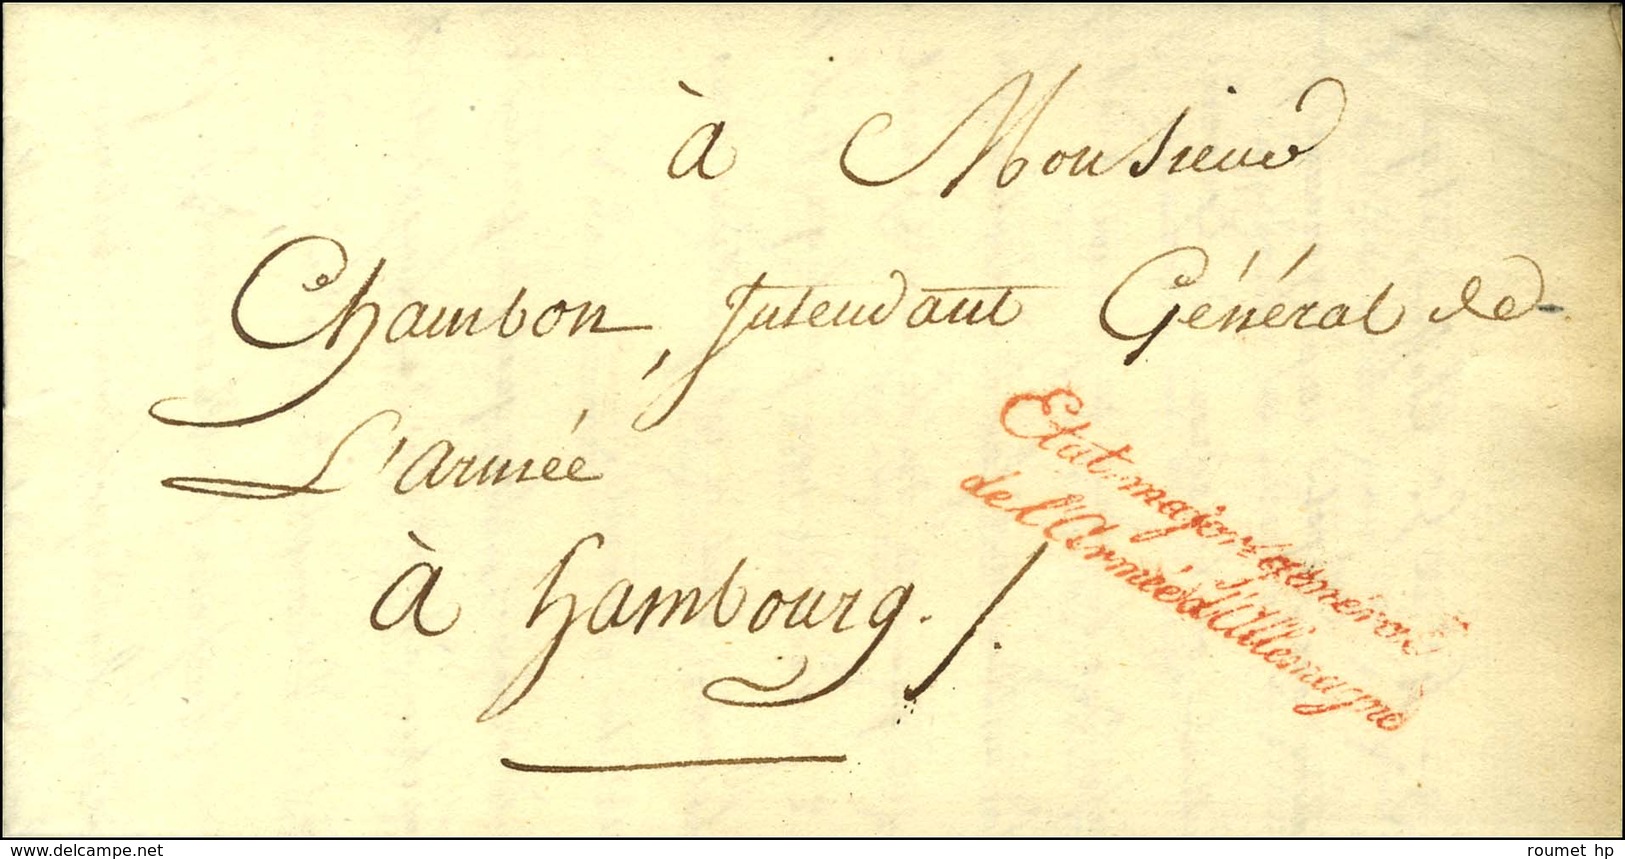 à Monsieur
Chambon, Intendant Général de
L'armée
à hambourg./.
Etat major général
de l'Armée d'Allemagne
www.delcampe.net
roumet hp